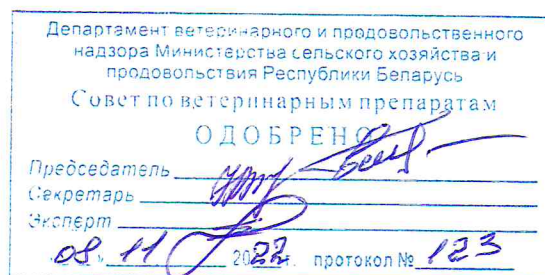 Департамент ветеринарного и продовольственного
надзора Министерства сельского хозяйства и
продовольствия Республики Беларусь
Совет по ветеринарным препаратам
ОДОБРЕНО
Председатель
Секретарь
Эксперт
«09» 11 2022 г. протокол № 123